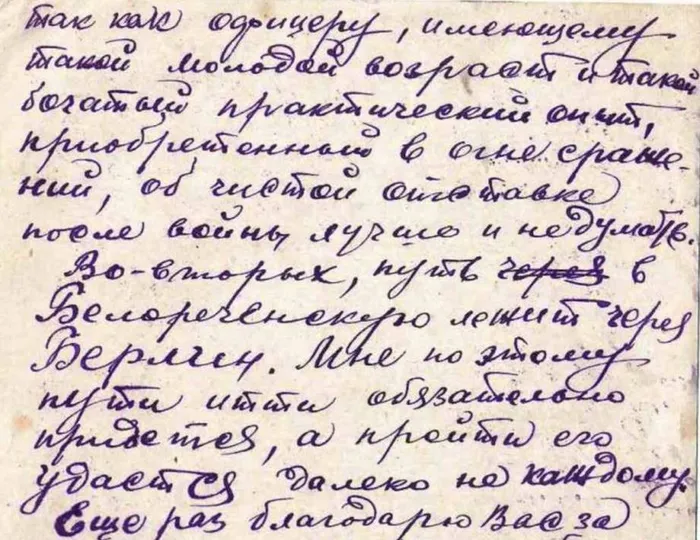 так как офицеру, имеющему
такой молодой возраст и такой
богатый практический опыт,
приобретенный в огне сраже-
ний, об чистой отставке
после войны лучше и не думать.
Во-вторых, путь через в
Белореченскую лежит через
Берлин. Мне по этому
пути итти обязательно
придется, а пройти его
удастся далеко не каждому.
Еще раз благодарю Вас за